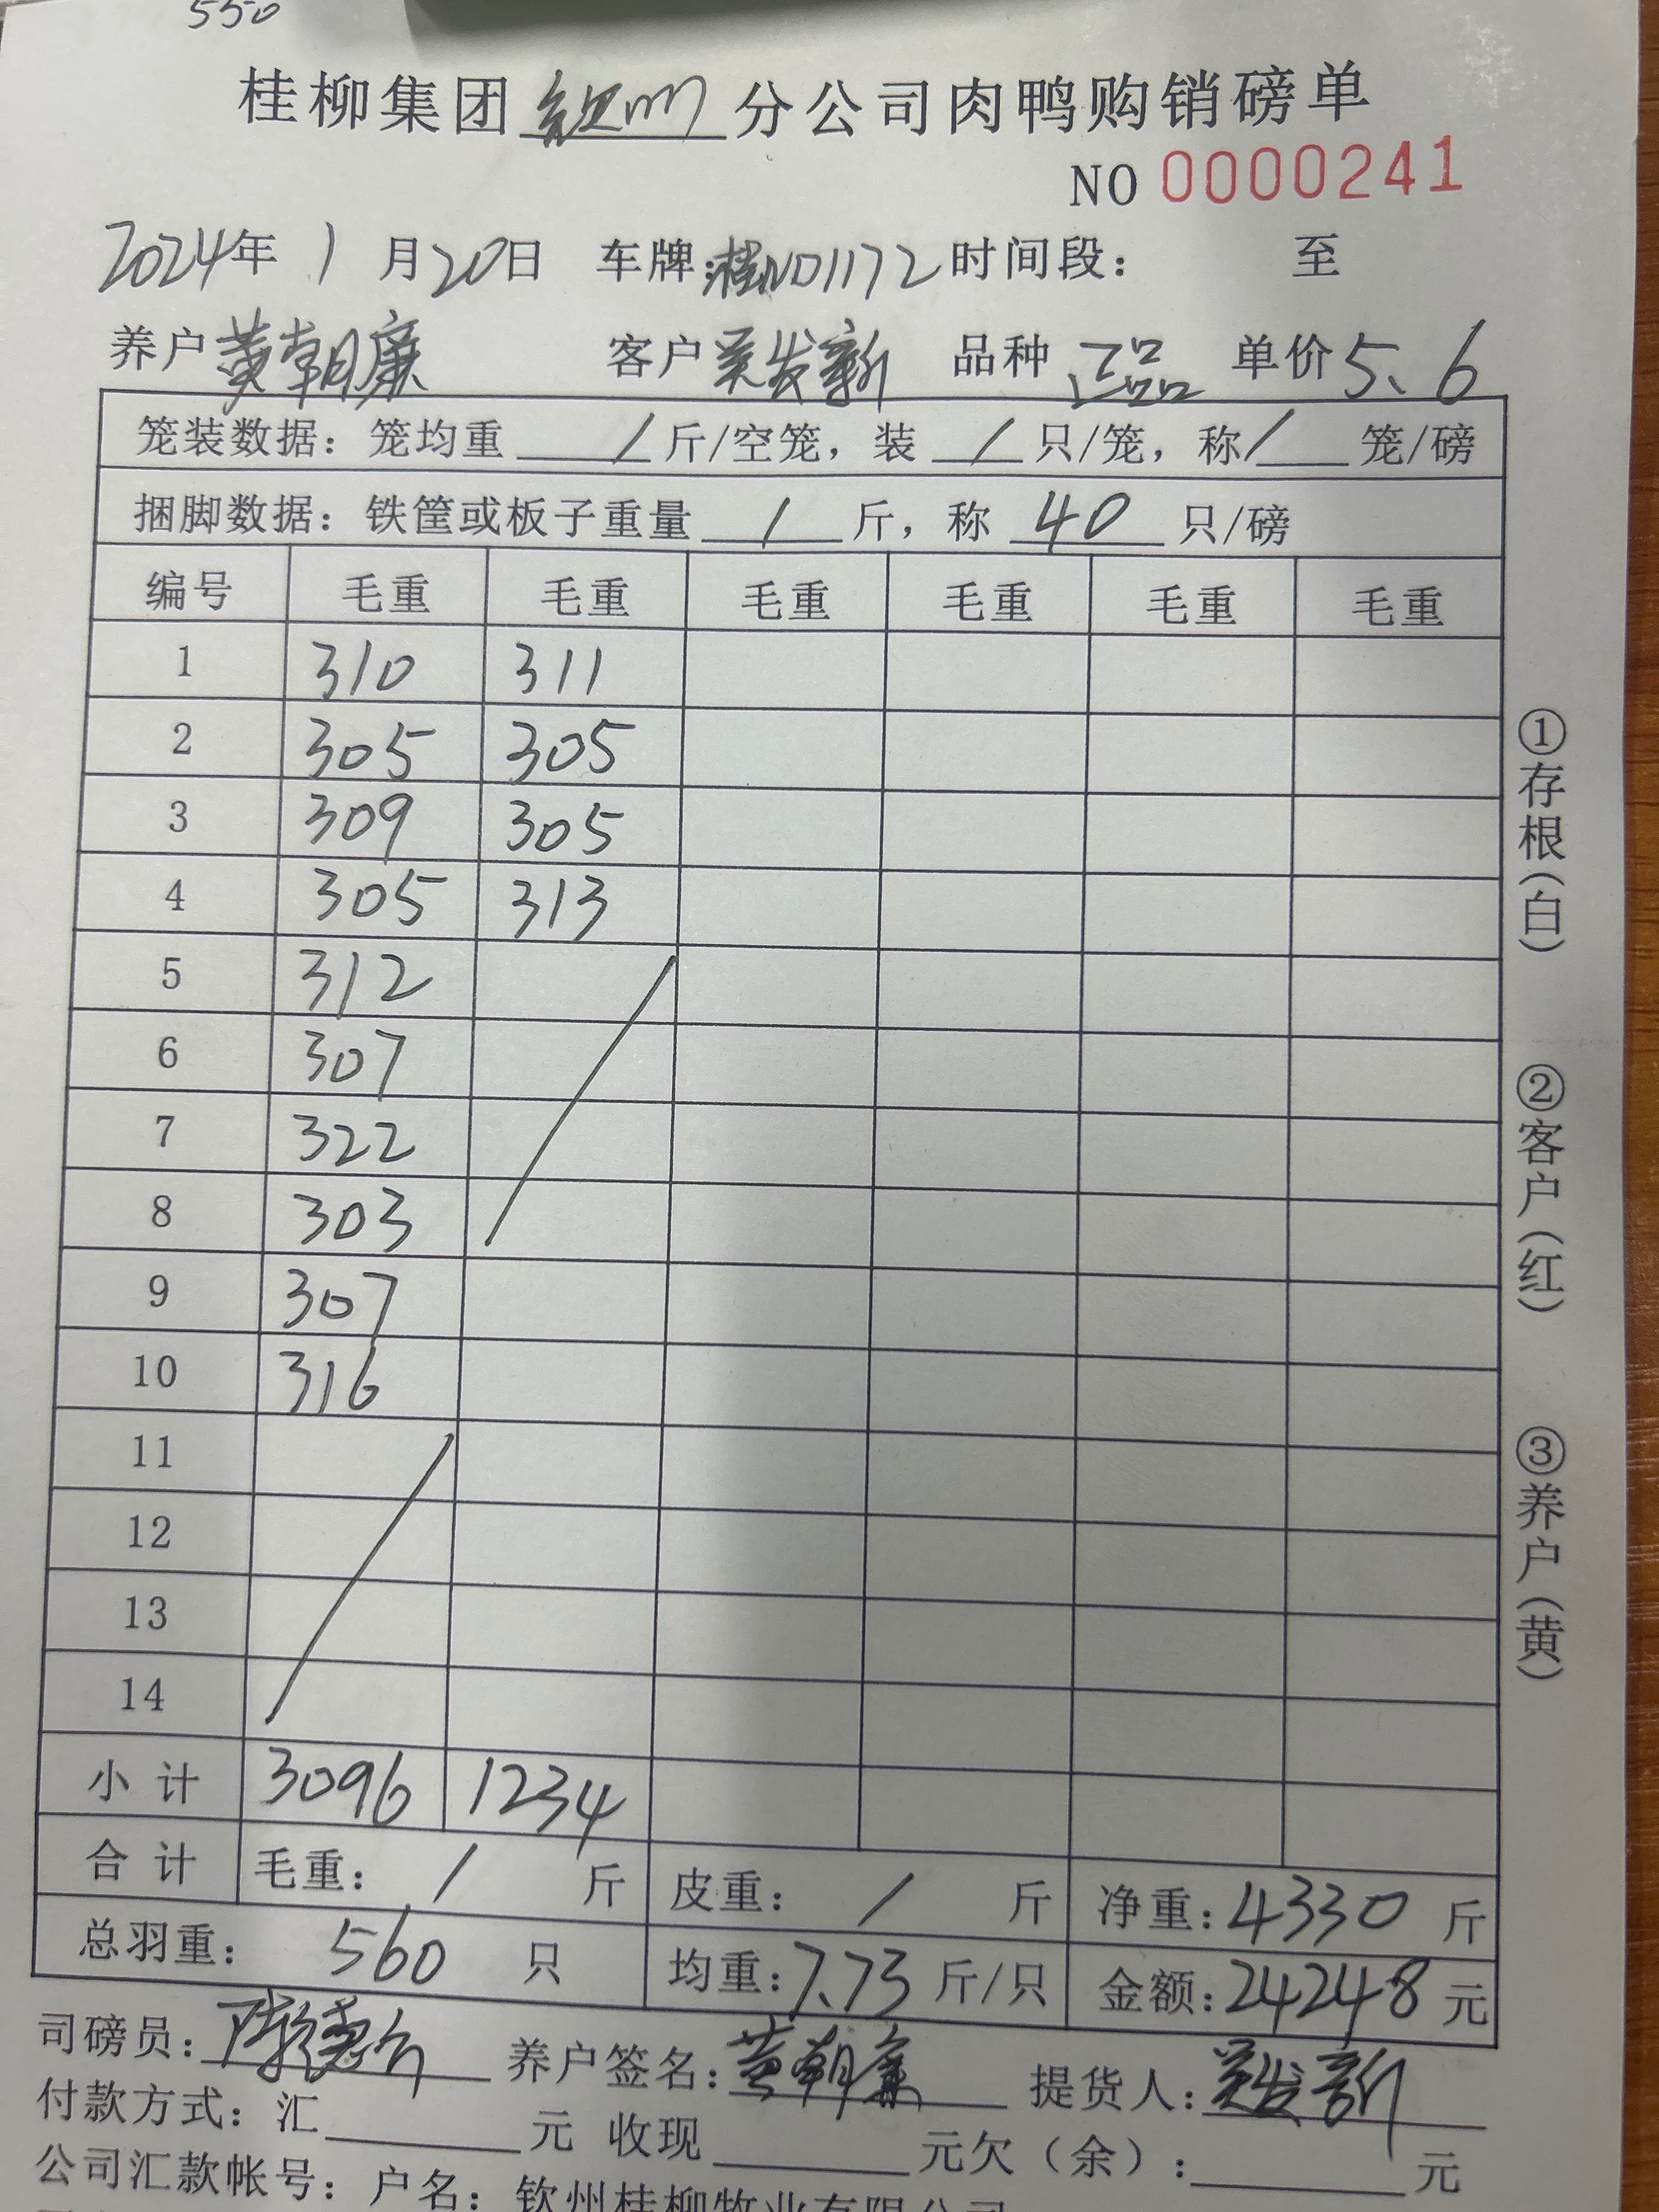 550
桂柳集团钦州分公司肉鸭购销磅单
NO 0000241
2024年 1 月20日 车牌:桂N01172 时间段: 至
养户黄朝廉 客户吴发新 品种 正品 单价5.6
笼装数据: 笼均重 / 斤/空笼, 装 / 只/笼, 称 / 笼/磅
捆脚数据: 铁筐或板子重量 / 斤, 称 40 只/磅
编号 毛重 毛重 毛重 毛重 毛重 毛重
1 310 311
2 305 305
3 309 305
4 305 313
5 312
6 307
7 322
8 303
9 307
10 316
11
12
13
14
小计 3096 1234
合计 毛重: / 斤 皮重: / 斤 净重:4330 斤
总羽重: 560 只 均重:7.73 斤/只 金额:24248 元
司磅员: 养户签名:黄朝廉 提货人:吴发新
付款方式: 汇 元 收现 元欠(余): 元
公司汇款帐号: 户名: 钦州桂柳牧业有限公司
①存根(白) ②客户(红) ③养户(黄)